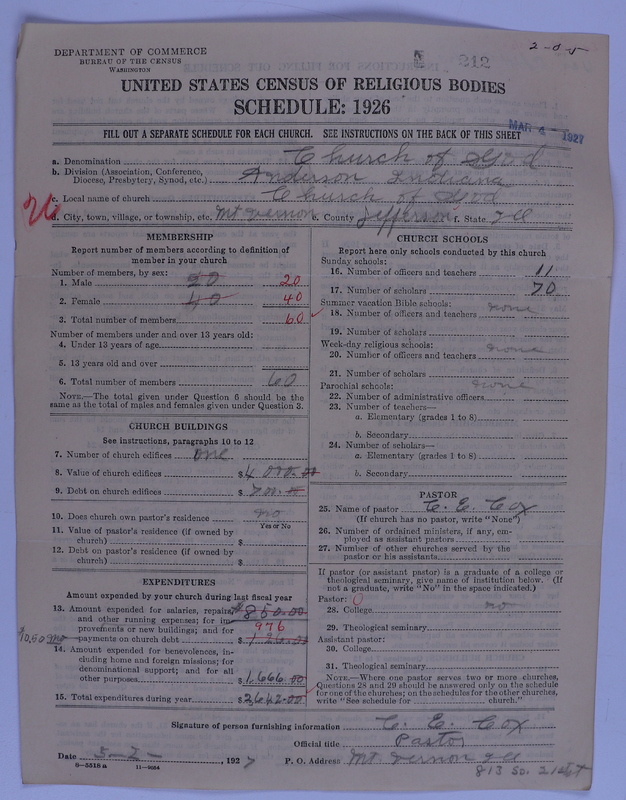 2-0-5
DEPARTMENT OF COMMERCE
BUREAU OF THE CENSUS
WASHINGTON
212
UNITED STATES CENSUS OF RELIGIOUS BODIES
SCHEDULE: 1926
MAR 4 1927
FILL OUT A SEPARATE SCHEDULE FOR EACH CHURCH. SEE INSTRUCTIONS ON THE BACK OF THIS SHEET
a. Denomination Church of God
b. Division (Association, Conference, Diocese, Presbytery, Synod, etc.) Anderson Indiana
c. Local name of church Church of God
d. City, town, village, or township, etc. Mt Vernon e. County Jefferson f. State Ill
MEMBERSHIP
Report number of members according to definition of
member in your church
Number of members, by sex:
1. Male 20 20
2. Female 40 40
3. Total number of members 60
Number of members under and over 13 years old:
4. Under 13 years of age
5. 13 years old and over
6. Total number of members 60
NOTE.—The total given under Question 6 should be the
same as the total of males and females given under Question 3.
CHURCH BUILDINGS
See instructions, paragraphs 10 to 12
7. Number of church edifices one
8. Value of church edifices $4000.00
9. Debt on church edifices $700.00
10. Does church own pastor's residence no
Yes or No
11. Value of pastor's residence (if owned by
church) $
12. Debt on pastor's residence (if owned by
church) $
EXPENDITURES
Amount expended by your church during last fiscal year
13. Amount expended for salaries, repairs, $850.00
and other running expenses; for im-
provements or new buildings; and for 976
10.50 mo payments on church debt $126.00
14. Amount expended for benevolences, in-
cluding home and foreign missions; for
denominational support; and for all
other purposes $1,666.00
15. Total expenditures during year $2642.00
CHURCH SCHOOLS
Report here only schools conducted by this church
Sunday schools:
16. Number of officers and teachers 11
17. Number of scholars 70
Summer vacation Bible schools: none
18. Number of officers and teachers
19. Number of scholars
Week-day religious schools: none
20. Number of officers and teachers
21. Number of scholars
Parochial schools: none
22. Number of administrative officers
23. Number of teachers—
a. Elementary (grades 1 to 8)
b. Secondary
24. Number of scholars—
a. Elementary (grades 1 to 8)
b. Secondary
PASTOR
25. Name of pastor C. E. Cox
(If church has no pastor, write "None")
26. Number of ordained ministers, if any, em-
ployed as assistant pastors
27. Number of other churches served by the
pastor or his assistants
If pastor (or assistant pastor) is a graduate of a college or
theological seminary, give name of institution below. (If
not a graduate, write "No" in the space indicated.)
Pastor: 0
28. College no
29. Theological seminary
Assistant pastor:
30. College
31. Theological seminary
NOTE.—Where one pastor serves two or more churches,
Questions 28 and 29 should be answered only on the schedule
for one of the churches; on the schedules for the other churches,
write "See schedule for church."
Signature of person furnishing information C. E. Cox
Official title Pastor
Date 3-2- , 1927 P. O. Address Mt. Vernon Ill
9-5518 a 11-9064 813 So. 21 St